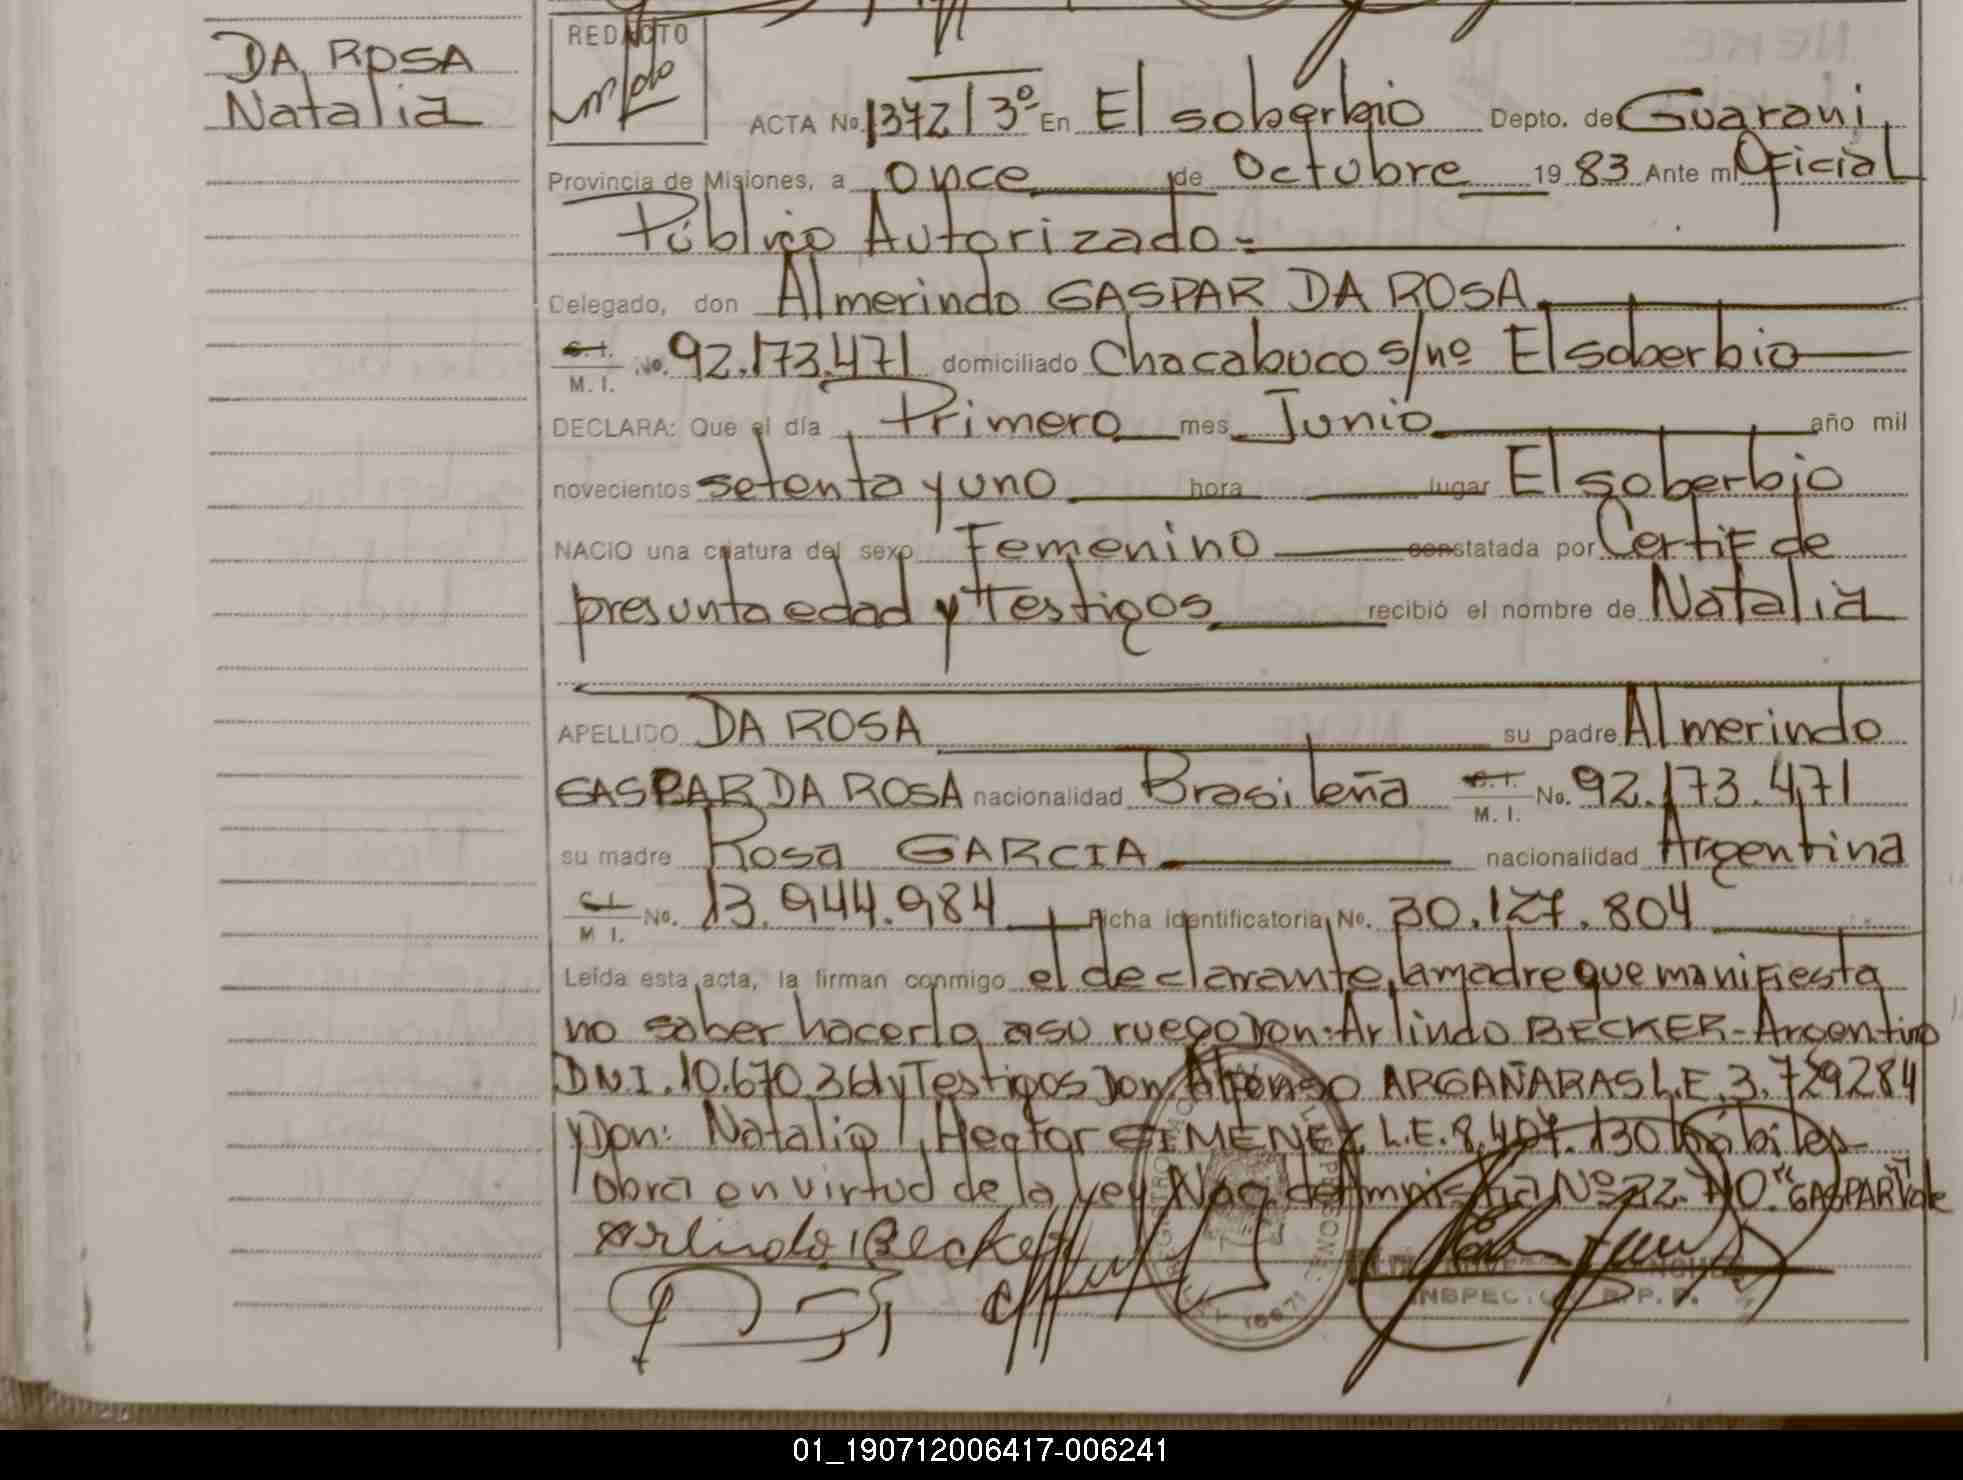 DA ROSA
Natalia
REDACTO
ACTA No. 1372 | 3º En El soberbio Depto. de Guarani
Provincia de Misiones, a once de Octubre 19 83 Ante mi Oficial
Público Autorizado=
Delegado, don Almerindo GASPAR DA ROSA
C.I. M.I. No. 92.173.471 domiciliado Chacabuco s/nº El soberbio
DECLARA: Que el día Primero mes Junio año mil
novecientos setenta y uno hora lugar El soberbio
NACIO una criatura del sexo Femenino constatada por Certif de
presunta edad y Testigos recibió el nombre de Natalia
APELLIDO DA ROSA su padre Almerindo
GASPAR DA ROSA nacionalidad Brasileña C.I. M.I. No. 92.173.471
su madre Rosa GARCIA nacionalidad Argentina
C.I. M I. No. 13.944.984 Ficha identificatoria No. 30.127.804
Leída esta acta, la firman conmigo el declarante, la madre que manifiesta
no saber hacerlo a su ruego Don: Arlindo BECKER-Argentino
D.N.I. 10.670.361 y Testigos Don Alfonso ARGAÑARAS L.E. 3.729284
y Don: Natalio Hector GIMENEZ L.E. 8.407.130 hábiles
obra en virtud de la Ley Nac. de Amnistia Nº 22. "GASPAR" vale
Arlindo Becker
01_190712006417-006241